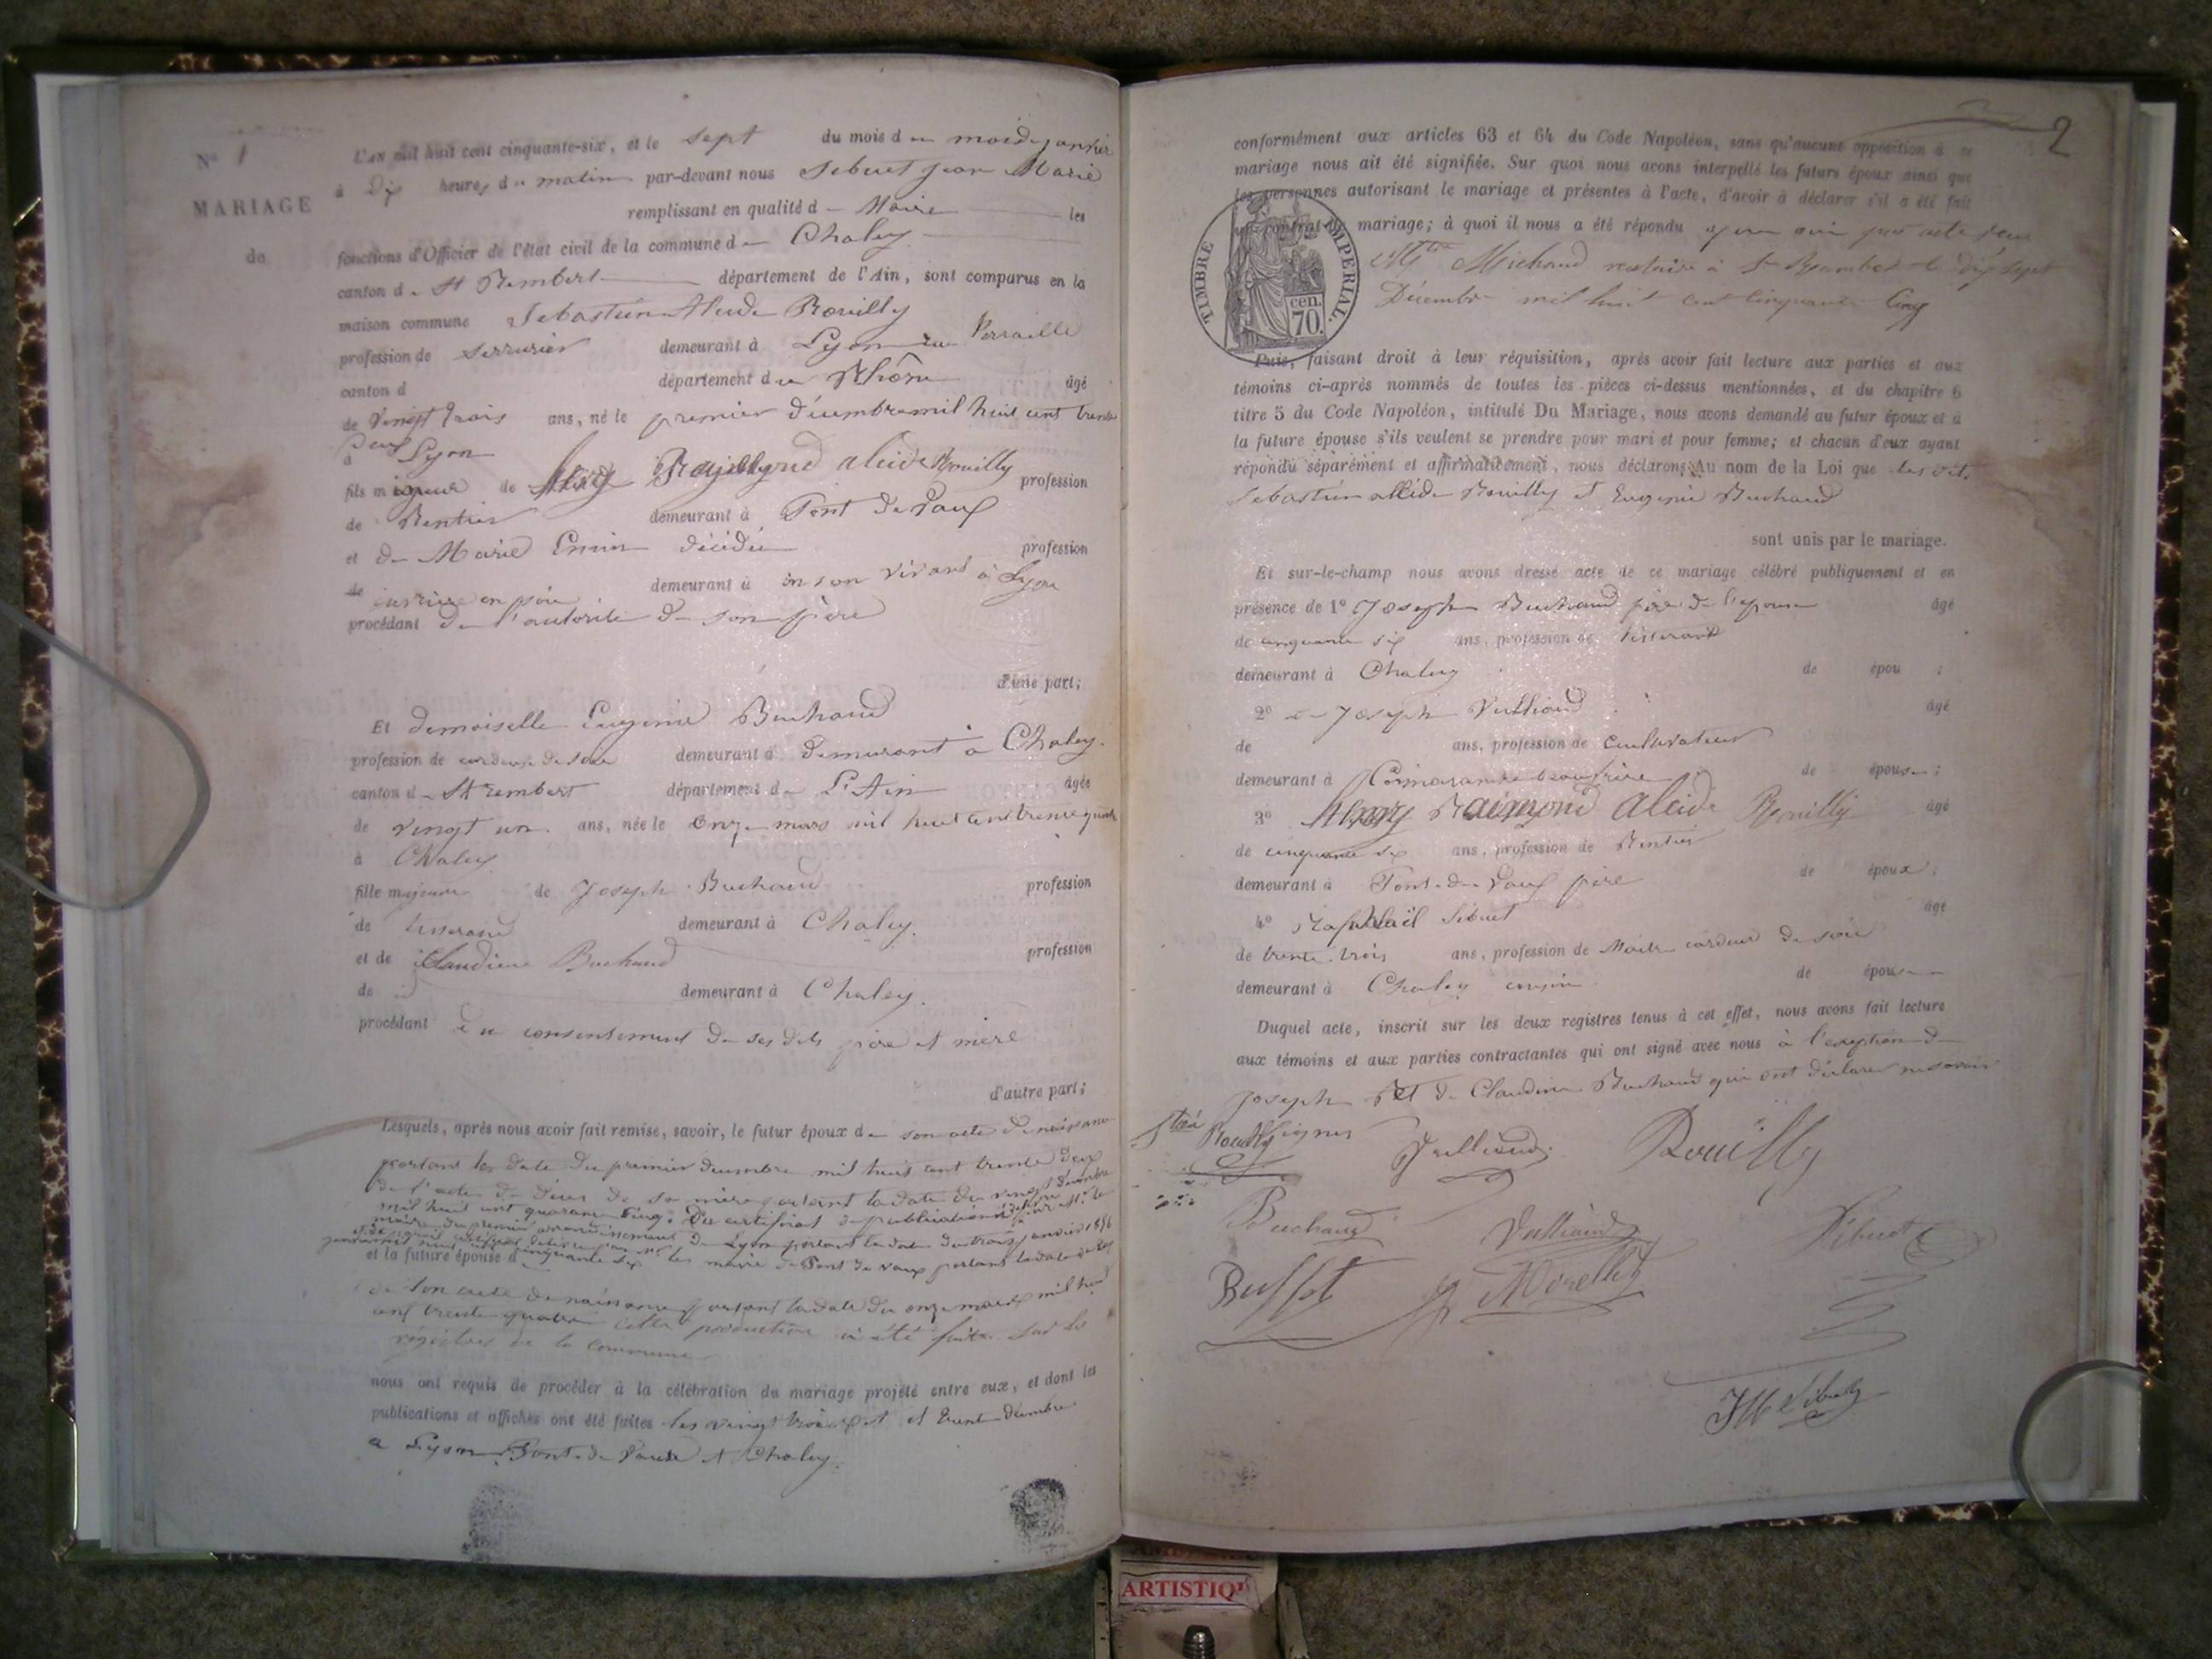 N° 1
MARIAGE
de
L'AN mil huit cent cinquante-six, et le sept du mois d moi de janvier
à Dix heures du matin par-devant nous Sebuet Jean Marie
remplissant en qualité d Maire les
fonctions d'Officier de l'état civil de la commune d Chaley
canton d St Rembert département de l'Ain, sont comparus en la
maison commune Sebastien Alcide Rouilly
profession de serrurier demeurant à Lyon rue
canton d département du Rhône âgé
de vingt trois ans, né le premier décembre mil huit cent trente
deux à Lyon
fils majeur de alcide Rouilly profession
de Rentier demeurant à Pont de Vaux
et de Marie décédée profession
de demeurant à en son vivant à Lyon
procédant de l'autorité de son père
d'une part;
Et demoiselle Eugenie Buchaud
profession de cardeuse de soie demeurant à demeurant à Chaley.
canton d St rembert département de L'Ain âgée
de vingt un ans, née le onze mars mil huit cent trente quatre
à Chaley
fille majeure de Joseph Buchaud profession
de tisserand demeurant à Chaley.
et de Claudine Buchaud profession
de demeurant à Chaley.
procédant du consentement de ses dits père et mère
d'autre part;
Lesquels, après nous avoir fait remise, savoir, le futur époux de son acte de naissance
portant la date du premier decembre mil huit cent trente deux
de l'acte de décès de sa mère portant la date du vingt decembre
mil huit cent quarante cinq. Du certificat de publication délivré par Mr le
maire du premier arrondissement de Lyon portant la date du trois janvier 1856
le maire de Pont de vaux portant la date
et la future épouse d
de son acte de naissance portant la date du onze mars mil huit
cent trente quatre cette production a été faite sur les
régistres de la commune
nous ont requis de procéder à la célébration du mariage projeté entre eux, et dont les
publications et affiches ont été faites les vingt trois et trente décembre
a Lyon, Pont-de Vaux et Chaley.
2
conformément aux articles 63 et 64 du Code Napoléon, sans qu'aucune opposition à ce
mariage nous ait été signifiée. Sur quoi nous avons interpellé les futurs époux ainsi que
les personnes autorisant le mariage et présentes à l'acte, d'avoir à déclarer s'il a été fait
un contrat de mariage; à quoi il nous a été répondu
Michaud notaire à St Rambert le dix sept
Décembre mil huit cent cinquante cinq
TIMBRE IMPERIAL.
cen.
70.
Puis, faisant droit à leur réquisition, après avoir fait lecture aux parties et aux
témoins ci-après nommés de toutes les pièces ci-dessus mentionnées, et du chapitre 6
titre 5 du Code Napoléon, intitulé Du Mariage, nous avons demandé au futur époux et à
la future épouse s'ils veulent se prendre pour mari et pour femme; et chacun d'eux ayant
répondu séparément et affirmativement, nous déclarons Au nom de la Loi que les dits
Sebastien alcide Rouilly et Eugenie Buchaud
sont unis par le mariage.
Et sur-le-champ nous avons dressé acte de ce mariage célébré publiquement et en
présence de 1° Joseph Buchaud père de l'epouse âgé
de cinquante six ans, profession de tisserand
demeurant à Chaley de épou ;
2° Joseph Vulliaud âgé
de ans, profession de cultivateur
demeurant à beaufrère de épouse ;
3° Raimond Alcide Rouilly âgé
de cinquante six ans, profession de Rentier
demeurant à Pont-de-Vaux père de époux ;
4° Raphaël Sibuet âgé
de trente trois ans, profession de Maitre cardeur de soie
demeurant à Chaley cousin de épouse
Duquel acte, inscrit sur les deux registres tenus à cet effet, nous avons fait lecture
aux témoins et aux parties contractantes qui ont signé avec nous à l'exception de
Joseph B et de Claudine Buchaud qui ont déclaré ne savoir
signer
Rouilly
Vulliaud
Rouilly
Buchaud
Vulliaud
Sibuet
Buffet
Morellet
JM Sibuet
ARTISTIQ